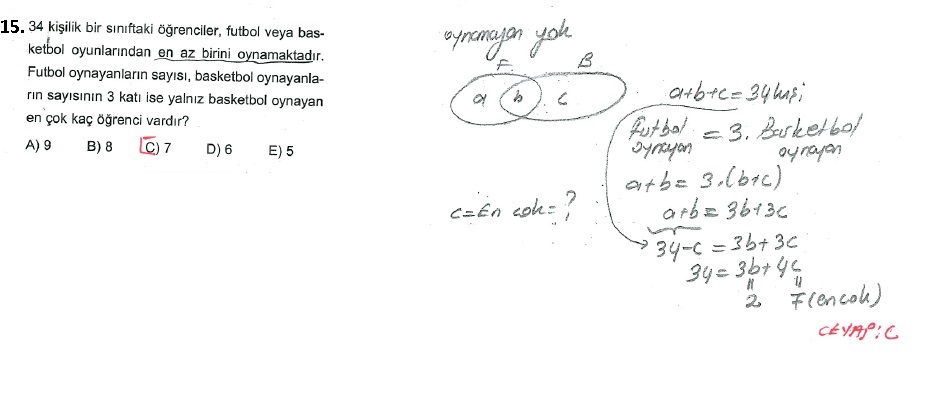 15. 34 kişilik bir sınıftaki öğrenciler, futbol veya bas-
ketbol oyunlarından en az birini oynamaktadır.
Futbol oynayanların sayısı, basketbol oynayanla-
rın sayısının 3 katı ise yalnız basketbol oynayan
en çok kaç öğrenci vardır?
A) 9 B) 8 C) 7 D) 6 E) 5
oynamayan yok
F B
a b c
c=En çok=?
a+b+c=34 kişi
Futbol oynayan = 3. Basketbol oynayan
a+b= 3.(b+c)
a+b= 3b+3c
34-c = 3b+3c
34=3b+4c
2 7(en çok)
CEVAP:C